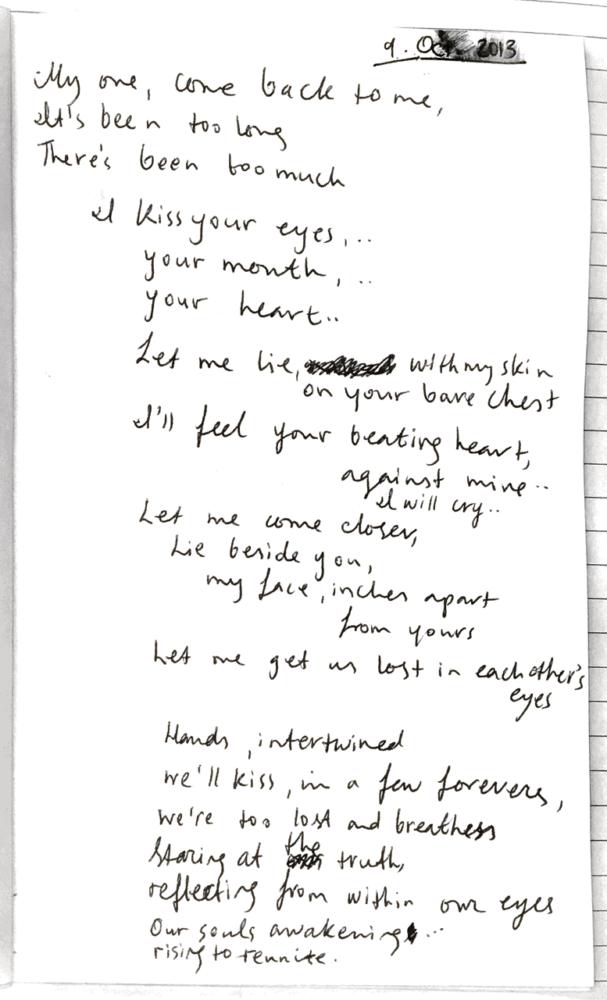 9. Oct. 2013
My one, come back to me,
It's been too long
There's been too much
I kiss your eyes,..
your mouth,..
your heart..
Let me lie, with my skin
on your bare chest
I'll feel your beating heart,
against mine..
I will cry..
Let me come closer,
Lie beside you,
my face, inches apart
from yours
Let me get us lost in each other's
eyes
Hands, intertwined
we'll kiss, in a few forevers,
we're too lost and breathess
Staring at the truth,
reflecting from within our eyes
Our souls awakening...
rising to reunite.